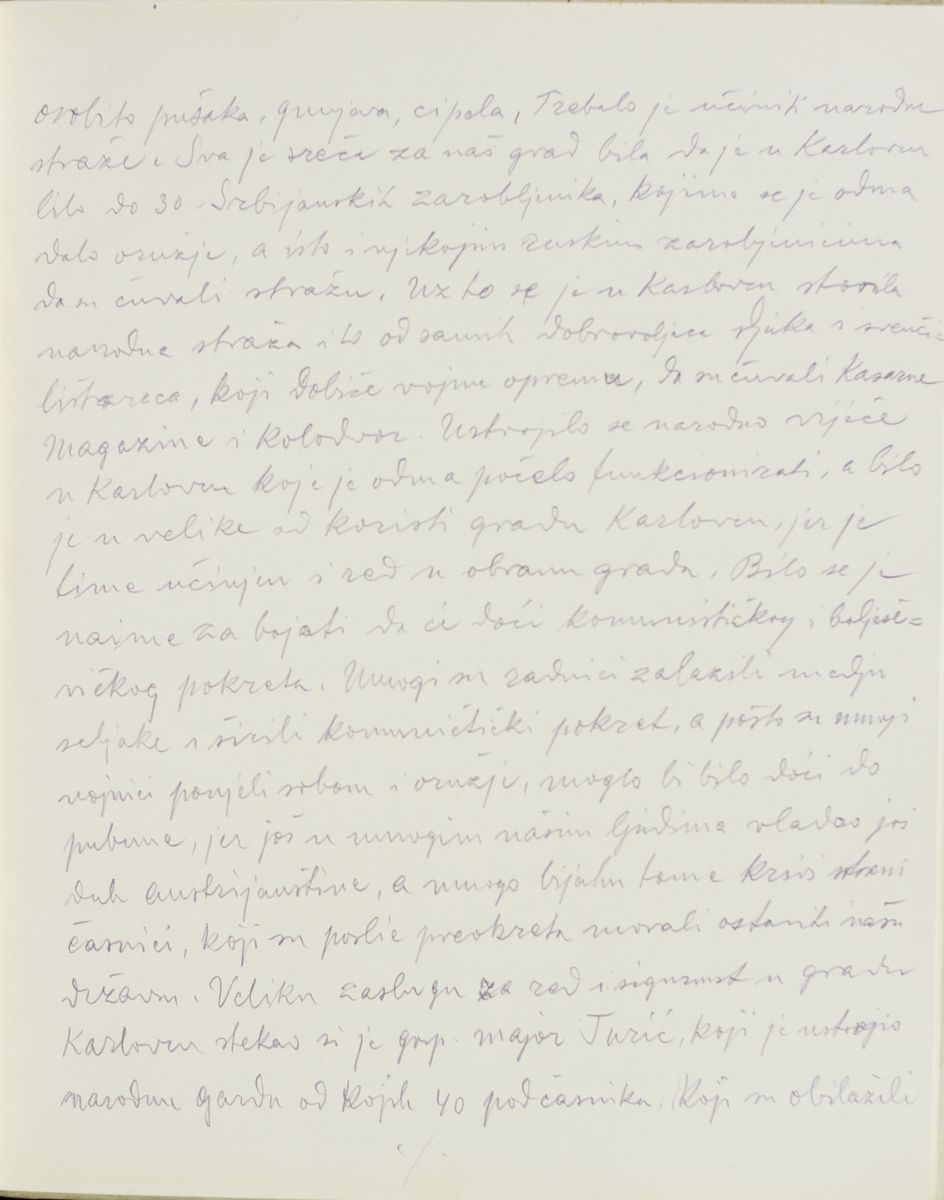 osobito pušaka, gunjava, cipela, Trebalo je učiniti narodne
straže. Sva je sreća za naš grad bila da je u Karlovcu
bilo do 30 Srbijanskih zarobljenika, kojima se je odma
dalo oružje, a isto i njekojim ruskim zarobljenicima
da su čuvali stražu. Uz to se je u Karlovcu stvorila
narodna straža i to od samih dobrovoljaca djaka i sveuči-
lištaraca, koji dobiše vojnu opremu, da su čuvali Kasarne
Magazine i kolodvor. Ustrojilo se narodno vijeće
u Karlovcu koje je odma počelo funkcionirati, a bilo
je u velike od koristi gradu Karlovcu, jer je
time učinjen i red u obranu grada. Bilo se je
naime za bojati da će doći komunističkog i boljše=
vičkog pokreta. Mnogi su radnici zalazili medju
seljake i širili komunistički pokret, a pošto su mnogi
vojnici ponjeli sobom i oružje, moglo bi bilo doći do
pobune, jer još u mnogim našim ljudima vladao još
duh austrijanštine, a mnogo bijahu tome krivi strani
časnici, koji su poslie preokreta morali ostaviti našu
državu. Veliku zaslugu za red i sigurnost u gradu
Karlovcu stekao si je gosp. major Turić, koji je ustrojio
narodnu gardu od kojih 40 podčasnika. Koji su obilazili